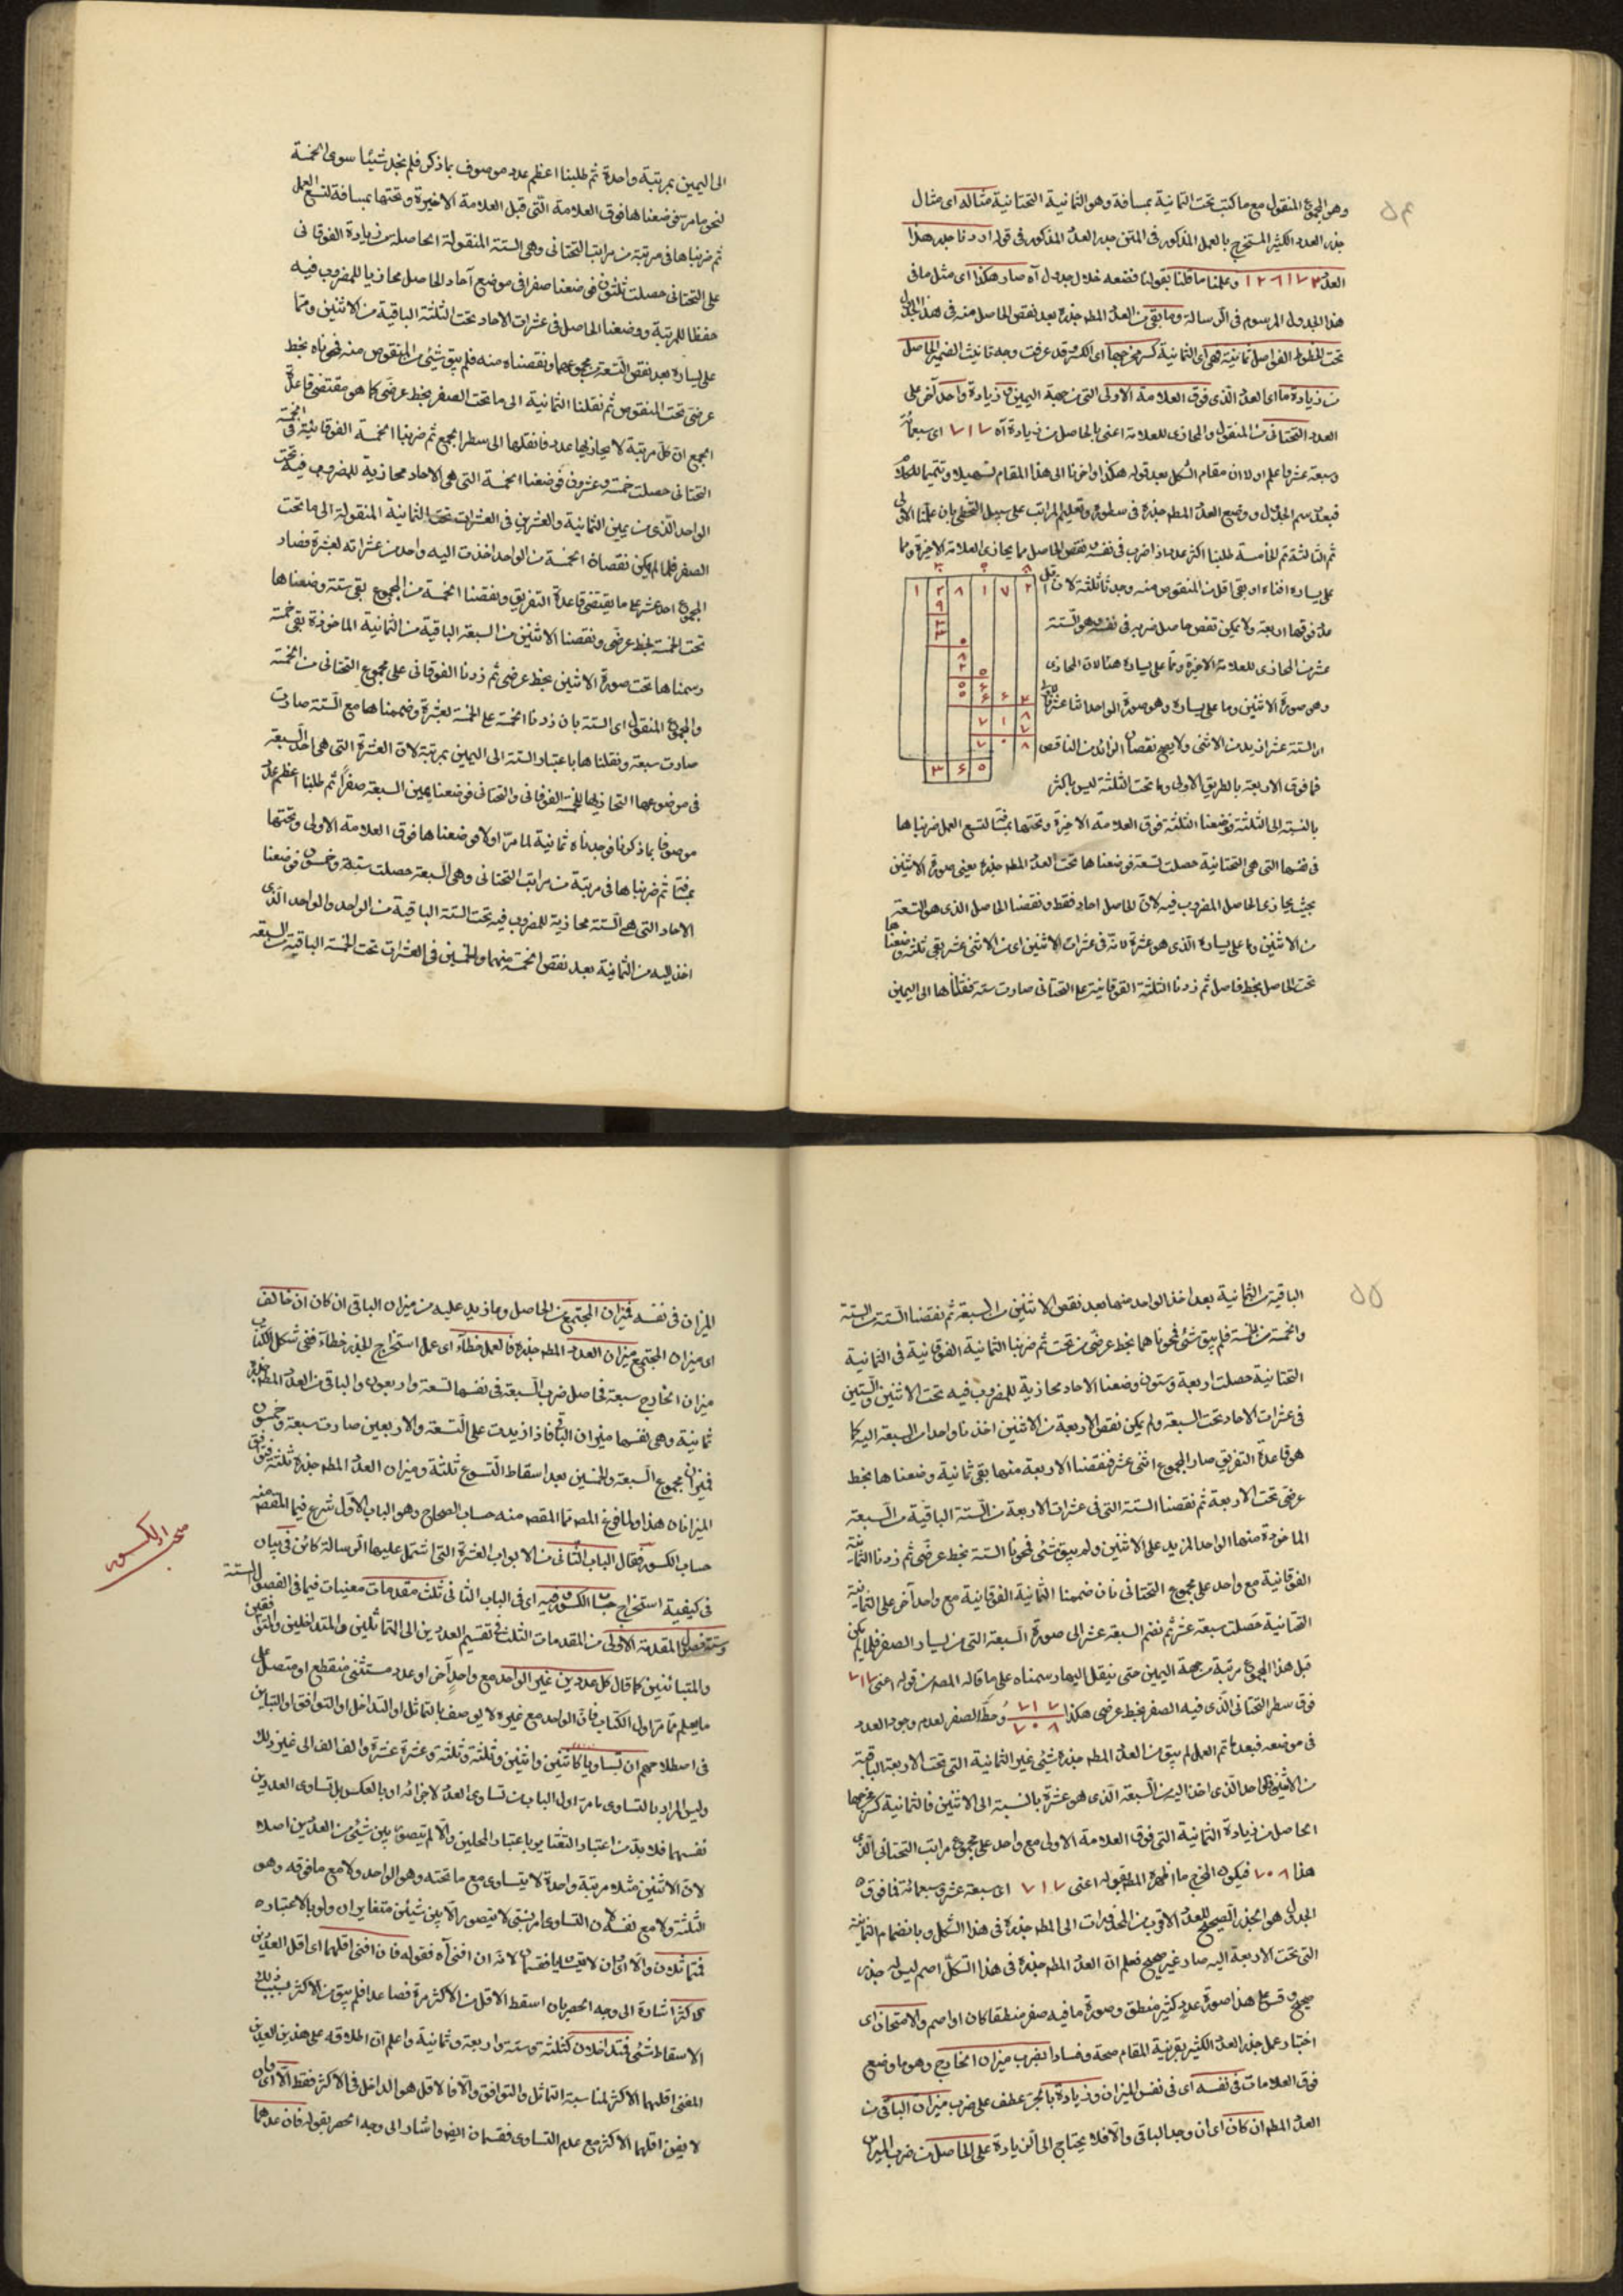 ۵۴
وهو المجموع المنقول مع ما كتب تحت الثمانية بمسافة وهو الثمانية التحتانية مثاله اى مثال
جذر العدد الكثير المستخرج بالعمل المذكور فى المتن جذر العدد المذكور فى قوله اردنا جذر هذا
العدد ١٢٨١٧٢ وعملنا ما قلنا بقولنا فضعه خلال جدول آه صار هكذا اى مثل ما فى
هذا الجدول المرسوم فى الرسالة وما بقى من العدد المط جذره بعد نقص الحاصل منه فى هذا الجدول
تحت الخطوط الفواصل ثمانية فهى اى الثمانية كسر مخرجها اى الكسر قد عرفت وجه تأنيث الضمير الحاصل
من زيادة ما اى العدد الذى فوق العلامة الاولى التى من جهة اليمين مع زيادة واحد آخر على
العدد التحتانى من المنقول والمحاذى للعلامة اعنى بالحاصل من زيادة آه ٧١٧ اى سبعمائة
وسبعة عشر واعلم اولا ان مقام الشكل بعد قوله هكذا واخرنا الى هذا المقام تسهيلا وتتميما للكلام
فبعد رسم الجدول ووضع العدد المط جذره فى سطوره وتعليم المراتب على سبيل التخطى بان علمنا الاولى
ثم الثالثة ثم الخامسة طلبنا اكثر عدد اذا ضرب فى نفسه نقص الحاصل مما يحاذى العلامة الاخيرة ومما
على يساره افناه او بقى اقل من المنقوص منه وجدنا ثلثة لان
ما فوقها اربعة ولا يمكن نقص حاصل ضربه فى نفسه وهو الستة
عشر من المحاذى للعلامة الاخيرة ومما على يساره هنا لان المحاذى
وهو صورة الاثنين وما على يساره وهو صورة الواحد اثنا عشر
والستة عشر ازيد من الاثنى ولا يصح نقصان الزائد من الناقص
فما فوق الاربعة بالطريق الاولى وما تحت الثلثة ليس باكثر
١ ٢ ٨ ١ ٧ ٢
٣ ٦ ٥
بالنسبة الى الثلثة فوضعنا الثلثة فوق العلامة الاخيرة وتحتها بمسافة لتسع العمل ضربناها
فى نفسها التى هى التحتانية حصلت تسعة فوضعناها تحت العدد المط جذره يعنى صورة الاثنين
بحيث يحاذى الحاصل المضروب فيه لان الحاصل احاد فقط ونقصنا الحاصل الذى هو التسعة
من الاثنين وما على يساره الذى هو عشرة لانه فى عشرات الاثنين اى من الاثنى عشر بقى ثلثة وضعناها
تحت الحاصل بخط فاصل ثم زدنا الثلثة الفوقانية على التحتانى صارت ستة نقلناها الى اليمين
الى اليمين بمرتبة واحدة ثم طلبنا اعظم عدد موصوف بما ذكر فلم نجد شيئا سوى الخمسة
لنحو ما مر فوضعناها فوق العلامة التى قبل العلامة الاخيرة وتحتها بمسافة لتسع العمل
ثم ضربناها فى مرتبة من مراتب التحتانى وهى الستة المنقولة الحاصلة من زيادة الفوقانى
على التحتانى حصلت ثلثون فوضعنا صفرا فى موضع آحاد الحاصل محاذيا للمضروب فيه
حفظا للمرتبة ووضعنا الحاصل فى عشرات الاحاد تحت الثلثة الباقية من الاثنين ومما
على يساره بعد نقص التسعة من مجموعهما ونقصناه منه فلم يبق شئ من المنقوص منه فمحوناه بخط
عرضى تحت المنقوص ثم نقلنا الثمانية الى ما تحت الصفر بخط عرضى كما هو مقتضى قاعدة
الجمع ان كل مرتبة لا يحاذيها عدد فانقلها الى سطر الجمع ثم ضربنا الخمسة الفوقانية فى الخمسة
التحتانى حصلت خمسة وعشرون فوضعنا الخمسة التى هى الاحاد محاذية للمضروب فيه تحت
الواحد الذى من يمين الثمانية والعشرين فى العشرات تحت الثمانية المنقولة الى ما تحت
الصفر فلما لم يمكن نقصان الخمسة من الواحد اخذت اليه واحد من عشراته لعشرة فصار
المجموع احد عشر على ما يقتضى قاعدة التفريق ونقصنا الخمسة من المجموع بقى ستة وضعناها
تحت الخمسة بخط عرضى ونقصنا الاثنين من السبعة الباقية من الثمانية الماخوذة بقى خمسة
رسمناها تحت صورة الاثنين بخط عرضى ثم زدنا الفوقانى على مجموع التحتانى من الخمسة
والمجموع المنقول اى الستة بان زدنا الخمسة على الخمسة لعشرة وضممناها مع الستة صارت
صارت سبعة ونقلناها باعتبار الستة الى اليمين بمرتبة لان العشرة التى هى احد السبعة
فى موضوعها التحاذيها للخمسة الفوقانى والتحتانى فوضعنا يمين السبعة صفرا ثم طلبنا اعظم عدد
موصوفا بما ذكرنا فوجدناه ثمانية لما مر اولا فوضعناها فوق العلامة الاولى وتحتها
بمسافة ثم ضربناها فى مرتبة من مراتب التحتانى وهى السبعة حصلت ستة وخمسون فوضعنا
الاحاد التى هى الستة محاذية للمضروب فيه تحت الستة الباقية من الواحد والواحد الذى
اخذ اليه من الثمانية بعد نقص الخمسة منهما والخمسين فى العشرات تحت الخمسة الباقية من السبعة
۵۵
الباقية من الثمانية بعد اخذ الواحد منها بعد نقص الاثنين من السبعة ثم نقصنا الستة من الستة
والخمسة من الخمسة فلم يبق شئ فمحوناهما بخط عرضى من تحت ثم ضربنا الثمانية الفوقانية فى الثمانية
التحتانية حصلت اربعة وستون وضعنا الاحاد محاذية للمضروب فيه تحت الاثنين والستين
فى عشرات الاحاد تحت السبعة ولم يمكن نقص الاربعة من الاثنين اخذنا واحدا من السبعة اليه كما
هو قاعدة التفريق صار المجموع اثنى عشر فنقصنا الاربعة منها بقى ثمانية وضعناها بخط
عرضى تحت الاربعة ثم نقصنا الستة التى فى عشرات الاربعة من الستة الباقية من السبعة
الماخوذة منها الواحد المزيد على الاثنين ولم يبق شئ فمحونا الستة بخط عرضى ثم زدنا الثمانية
الفوقانية مع واحد على مجموع التحتانى بان ضممنا الثمانية الفوقانية مع واحد آخر على الثمانية
التحتانية حصلت سبعة عشر ثم نضم السبعة عشر الى صورة السبعة التى من يسار الصفر فلما لم يكن
قبل هذا المجموع مرتبة من جهة اليمين حتى ينقل اليها رسمناه على ما قاله المص من قوله اعنى ٧١٧
فوق سطر التحتانى الذى فيه الصفر بخط عرضى هكذا ٧١٧ / ٧٠٨ وحط الصفر لعدم وجود العدد
فى موضعه فبعد ما تم العمل لم يبق من العدد المط جذره شئ غير الثمانية التى تحت الاربعة الباقية
من الاثنين والواحد الذى اخذ اليه من السبعة الذى هو عشرة بالنسبة الى الاثنين فالثمانية كسر مخرجها
الحاصل من زيادة الثمانية التى فوق العلامة الاولى مع واحد على مجموع مراتب التحتانى الذى
هذا ٧٠٨ فيكون المخرج ما اظهره المص بقوله اعنى ٧١٧ اى سبعة عشر وسبعمائة فما فوق
الجدول هو الجذر الصحيح للعدد الاقرب من المجذورات الى المط جذره فى هذا الشكل وبانضمام الثمانية
التى تحت الاربعة اليه صار غير صحيح فعلم ان العدد المط جذره فى هذا الشكل اصم ليس له جذر
صحيح وقس على هذا صورة عدد كثير منطق وصورة ما فيه صفر منطقا كان او اصم والامتحان اى
اختبار عمل جذر العدد الكثير بقرينة المقام صحة وفسادا بضرب ميزان الخارج وهو ما وضع
فوق العلامات فى نفسه اى فى نفس الميزان وزيادة بالجر عطف على ضرب ميزان الباقى من
العدد المط ان كان اى ان وجد الباقى والا فلا يحتاج الى الزيادة على الحاصل من ضرب الميزان
الميزان فى نفسه فميزان المجتمع من الحاصل وما زيد عليه من ميزان الباقى ان كان ان خالف
اى ميزان المجتمع ميزان العدد المط جذره فالعمل خطأ اى عمل استخراج الجذر خطاء ففى شكل الكتاب
ميزان الخارج سبعة فحاصل ضرب السبعة فى نفسها تسعة واربعون والباقى من العدد المط جذره
ثمانية وهى نفسها ميزان الباقى فاذا زيدت على التسعة والاربعين صارت سبعة وخمسون
فميزان مجموع السبعة والخمسين بعد اسقاط التسوع ثلثة وميزان العدد المط جذره ثلثة فيتفق
الميزانان هذا ولما فرغ المص مما المقصد منه حساب الصحاح وهو الباب الاول شرع فيما المقصد منه
حساب الكسور فقال الباب الثانى من الابواب العشرة التى اشتمل عليها الرسالة كائن فى بيان
فى كيفية استخراج حساب الكسور وفيه اى فى الباب الثانى ثلث مقدمات معنيات فيما فى الفصول الستة
وستة فصول المقدمة الاولى من المقدمات الثلث فى تقسيم العددين الى المتماثلين والمتداخلين والمتوافقين
والمتباينين كما قال كل عددين غير الواحد مع واحد آخر او عدد مستثنى منقطع او متصل على
ما يعلم مما مر اول الكتاب فان الواحد مع غيره لا يوصف بالتماثل او التداخل او التوافق او التباين
فى اصطلاحهم ان تساويا كاثنين واثنين وثلثة وثلثة وعشرة عشرة والف الف الى غير ذلك
وليس المراد بالتساوى ما مر اول الباب من تساوى العدد لاجزائه او بالعكس بل تساوى العددين
نفسهما فلا بد من اعتبار التغاير باعتبار المحلين والا لم يتصور بين شئ من العددين اصلا
لان الاثنين مثلا مرتبة واحدة لا يتساوى مع ما تحته وهو الواحد ولا مع ما فوقه وهو
الثلثة ولا مع نفسه لان التساوى امر نسبى لا يتصور الا بين شيئين متغايران ولو بالاعتبار
فمتماثلان والا اى ان لا يتساويا فقسمان لانه ان افنى آه فقوله فان افنى اقلهما اى اقل العددين
الاكثر اشارة الى وجه الحصر بان اسقط الاقل من الاكثر مرة فصاعدا فلم يبق من الاكثر بسبب ذلك
الاسقاط شئ فمتداخلان كثلثة وستة واربعة وثمانية واعلم ان اطلاقه على هذين العددين
المفنى اقلهما الاكثر لمناسبة التماثل والتوافق والا فالاقل هو الداخل فى الاكثر فقط والا اى وان
لا يفن اقلهما الاكثر مع عدم التساوى فقسمان ايضا واشار الى وجه الحصر بقوله فان عدهما